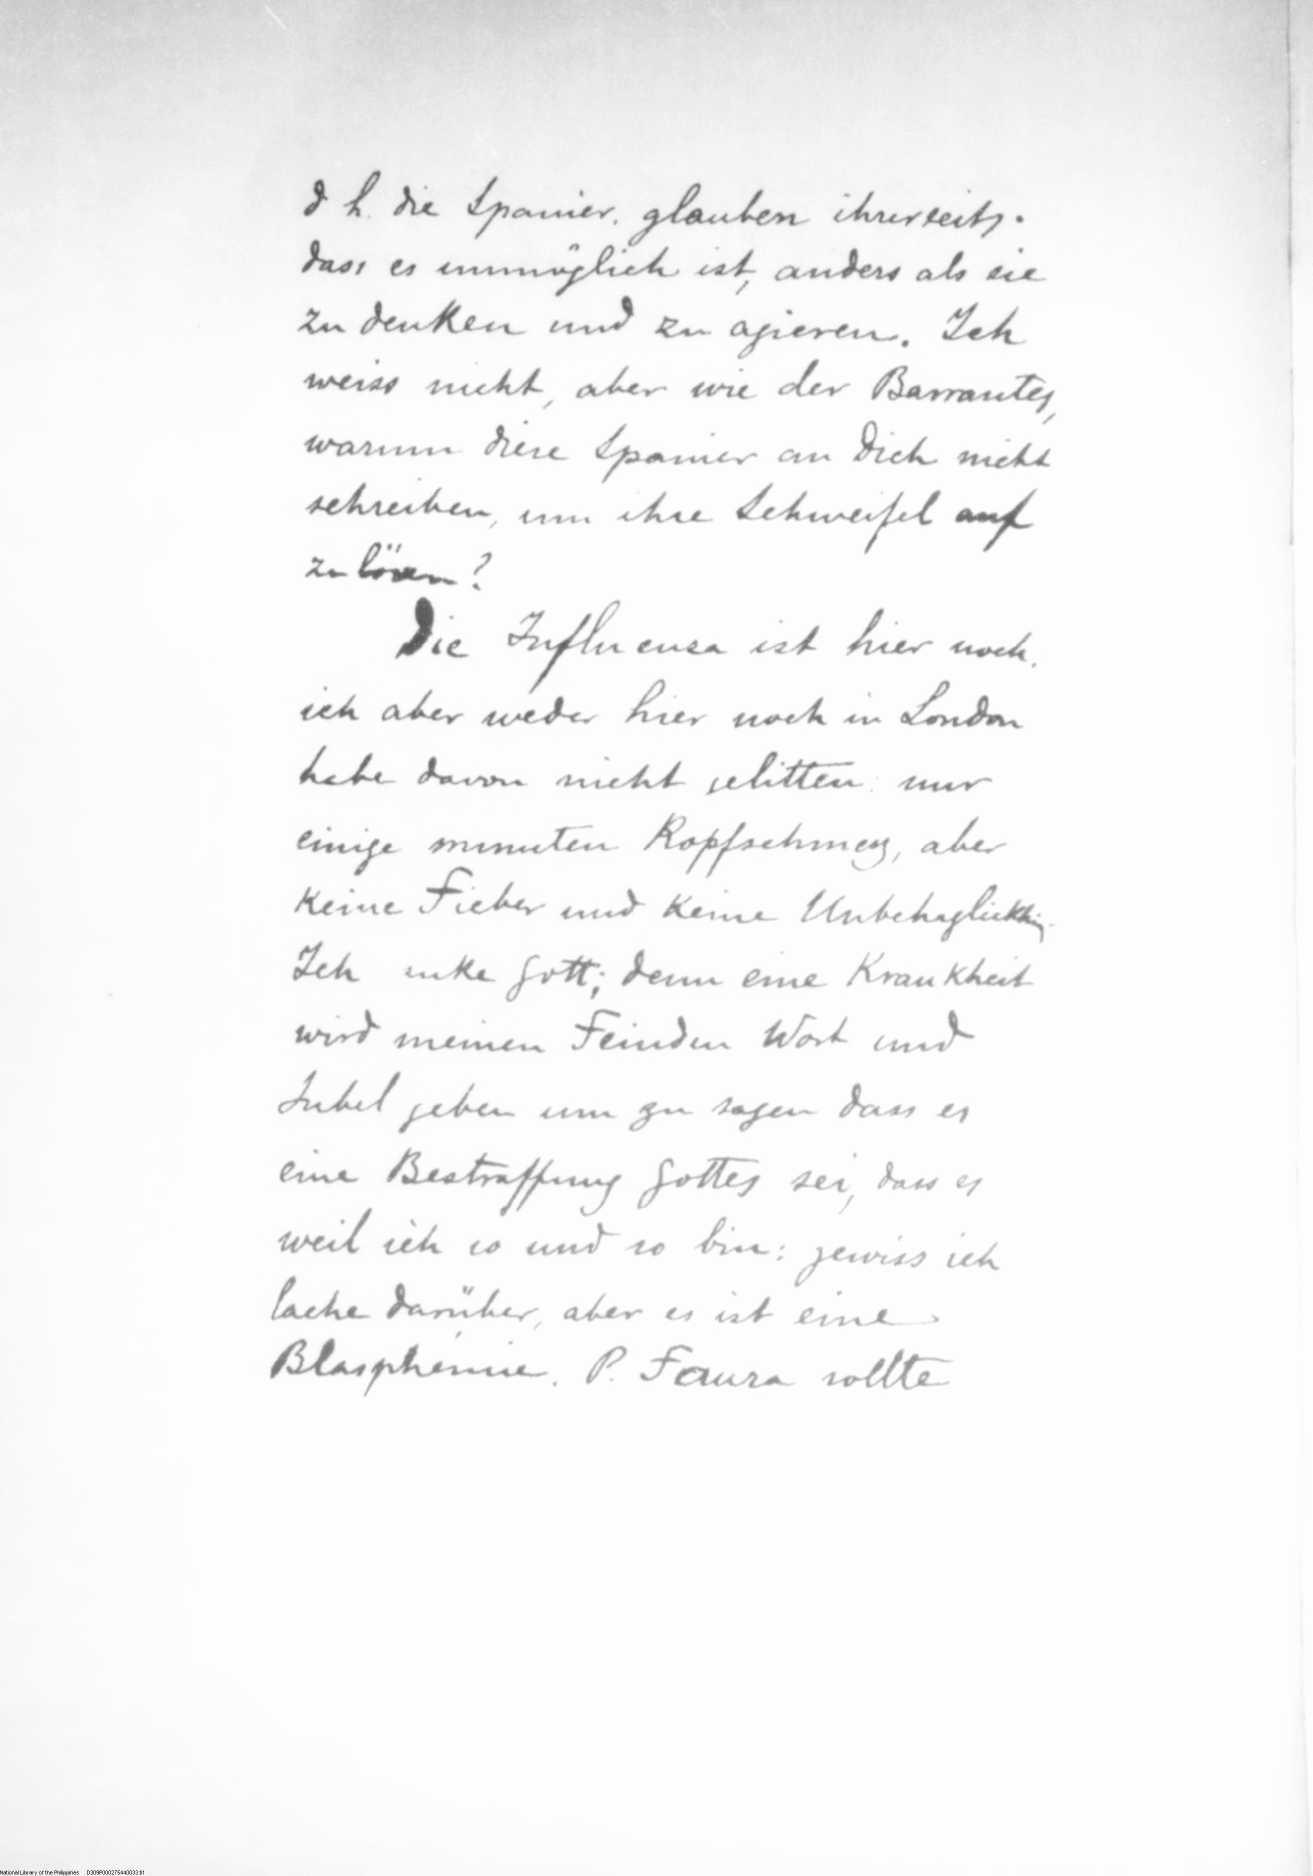 d h. die Spanier. glauben ihrerseits.
dass es unmöglich ist, anders als sie
zu denken und zu agieren. Ich
weiss nicht, aber wie der Barrantes,
warum diese Spanier an Dich nicht
schreiben, um ihre Schweifel auf
zu lösen?
Die Influenza ist hier noch.
ich aber weder hier noch in London
habe davon nicht gelitten: nur
einige minuten Kopfschmerz, aber
keine Fieber und keine
Ich Gott; denn eine Krankheit
wird meinen Feinden Wort und
Jubel geben um zu sagen dass es
eine Bestraffung Gottes sei, dass es
weil ich so und so bin: gewiss ich
lache darüber, aber es ist eine
Blasphemie. P. Faura sollte
National Library of the Philippines